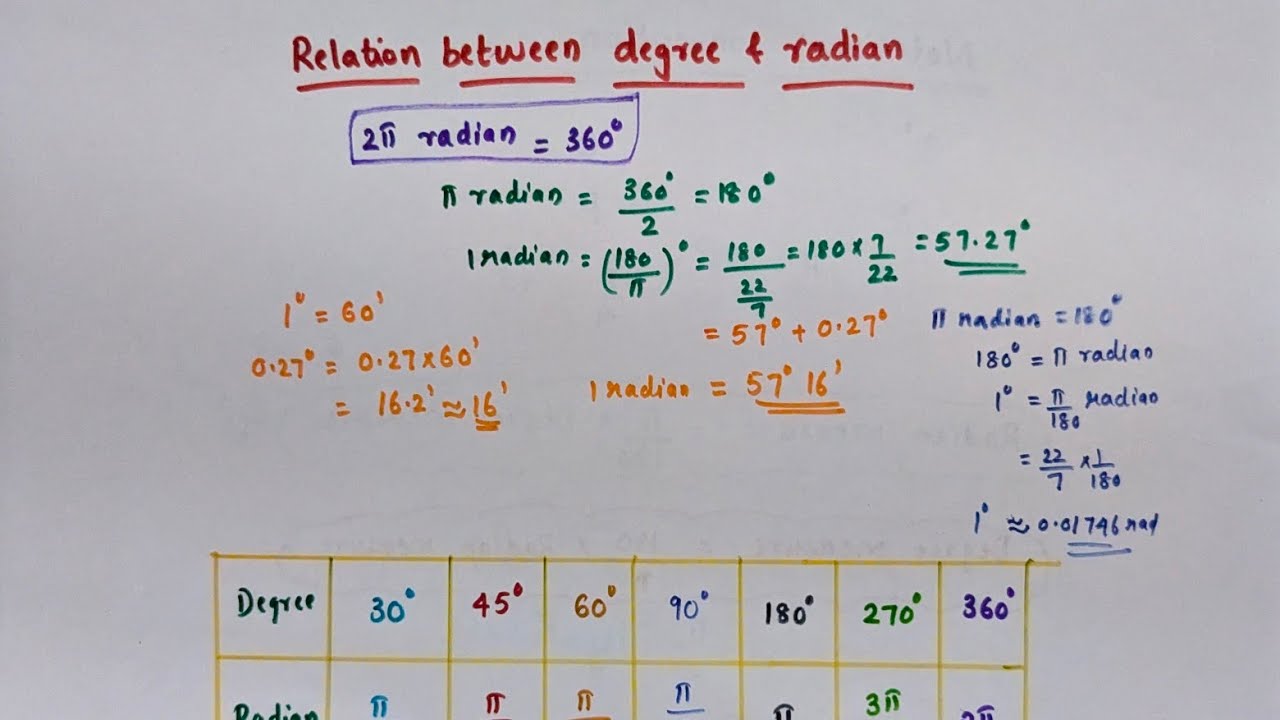 Relation between degree & radian
2π radian = 360°
π radian = 360°/2 = 180°
1 radian = (180/π)° = 180/(22/7) = 180 × 7/22 = 57.27°
= 57° + 0.27°
1 radian = 57° 16'
1° = 60'
0.27° = 0.27 × 60'
= 16.2' ≈ 16'
π radian = 180°
180° = π radian
1° = π/180 radian
= 22/7 × 1/180
1° ≈ 0.01746 rad
Degree 30° 45° 60° 90° 180° 270° 360°
Radian π π π π π 3π 2π